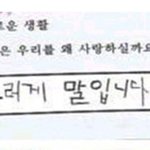 운 생활
은 우리를 왜 사랑하실까요
그러게 말입니다